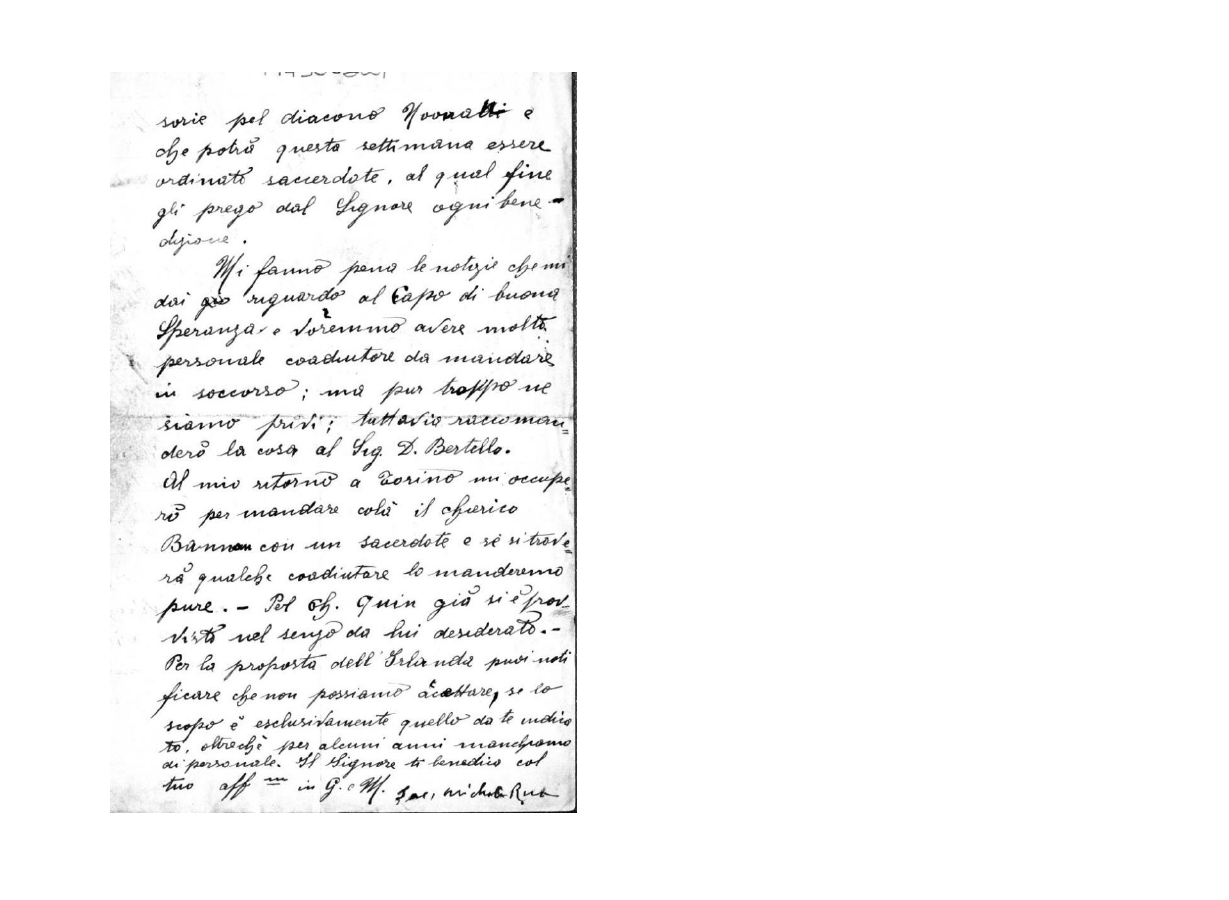 sorie pel diacono e
che potrà questa settimana essere
ordinato sacerdote, al qual fine
gli prego dal Signore ogni bene-
dizione.
Mi fanno pena le notizie che mi
dai riguardo al Capo di buona
Speranza e voremmo avere molto
personale coadiutore da mandare
in soccorso; ma pur troppo ne
siamo privi; tuttavia raccoman=
derò la cosa al Sig. D. Bertello.
Al mio ritorno a Torino mi occupe=
rò per mandare colà il chierico
Bannon con un sacerdote e se si trove=
rà qualche coadiutore lo manderemo
pure. - Pel ch. Quin già si è prov-
visto nel senso da lui desiderato. -
Per la proposta dell'Irlanda puoi noti
ficare che non possiamo accettare, se lo
scopo è esclusivamente quello da te indica
to, oltrechè per alcuni anni manchiamo
di personale. Il Signore ti benedica col
tuo aff m in G. e M. Sac, Michele Rua